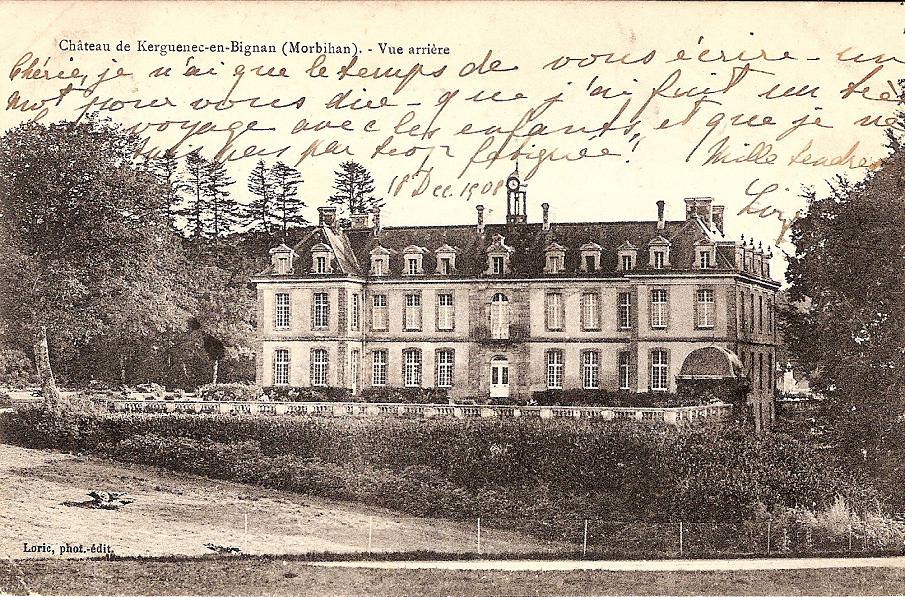 Château de Kerguenec-en-Bignan (Morbihan). - Vue arrière
Chérie, je n'ai que le temps de vous écrire - un
mot pour vous dire - que j'ai fait un très
voyage avec les enfants, et que je ne
suis pas par trop fatiguée. Mille tendres
18 Dec. 1908
Loric, phot.-édit.